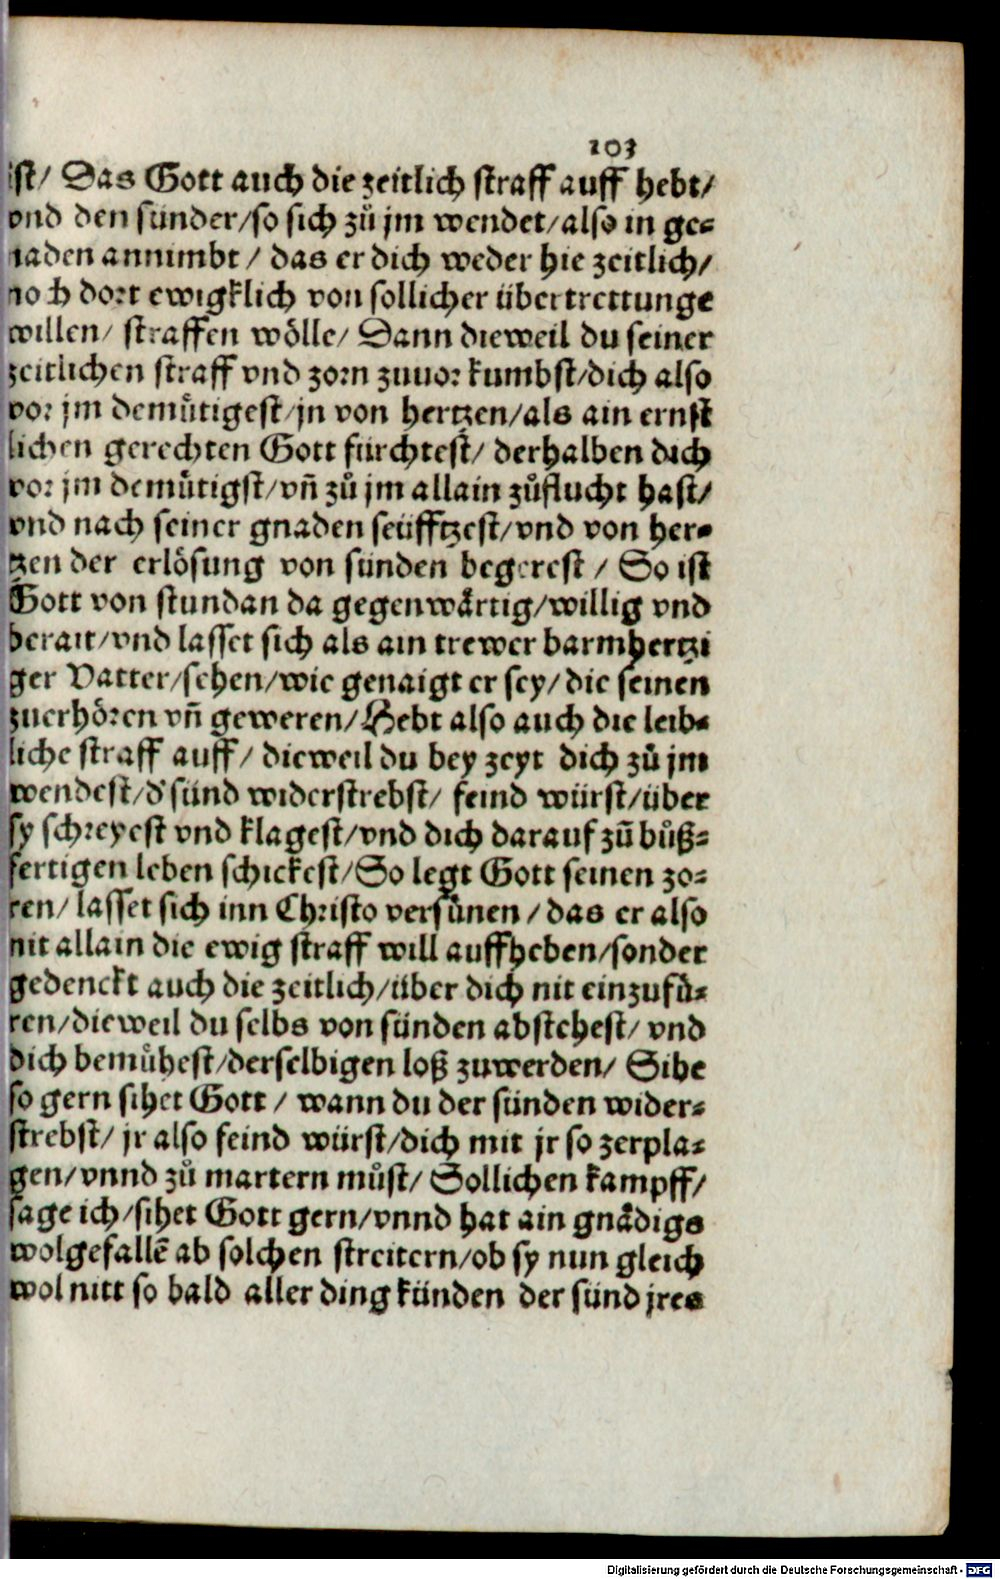 103
ist/ Das Gott auch die zeitlich straff auff hebt/
vnd den sünder/so sich zů jm wendet/also in ge-
naden annimbt / das er dich weder hie zeitlich/
noch dort ewigklich von sollicher übertrettunge
willen/ straffen wölle/ Dann dieweil du seiner
zeitlichen straff vnd zorn zuuor kumbst/dich also
vor jm demütigest/jn von hertzen/als ain ernst
lichen gerechten Gott fürchtest/ derhalben dich
vor jm demütigst/vñ zů jm allain zůflucht hast/
vnd nach seiner gnaden seüfftzest/vnd von her-
tzen der erlösung von sünden begerest / So ist
Gott von stundan da gegenwärtig/willig vnd
berait/vnd lasset sich als ain trewer barmhertzi
ger Vatter/sehen/wie genaigt er sey/die seinen
zuerhören vñ geweren/Hebt also auch die leib-
liche straff auff/ dieweil du bey zeyt dich zů jm
wendest/d' sünd widerstrebst/ feind würst/über
sy schreyest vnd klagest/vnd dich darauf zů bůß-
fertigen leben schickest/So legt Gott seinen zo-
ren/ lasset sich inn Christo versünen / das er also
nit allain die ewig straff will auffheben/sonder
gedenckt auch die zeitlich/über dich nit einzufü-
ren/dieweil du selbs von sünden abstehest/ vnd
dich bemühest/derselbigen loß zuwerden/ Sihe
so gern sihet Gott / wann du der sünden wider-
strebst/ jr also feind würst/dich mit jr so zerpla-
gen/vnnd zů martern můst/ Sollichen kampff/
sage ich/sihet Gott gern/vnnd hat ain gnädigs
wolgefallē ab solchen streitern/ob sy nun gleich
wol nitt so bald aller ding künden der sünd jres
Digitalisierung gefördert durch die Deutsche Forschungsgemeinschaft - DFG